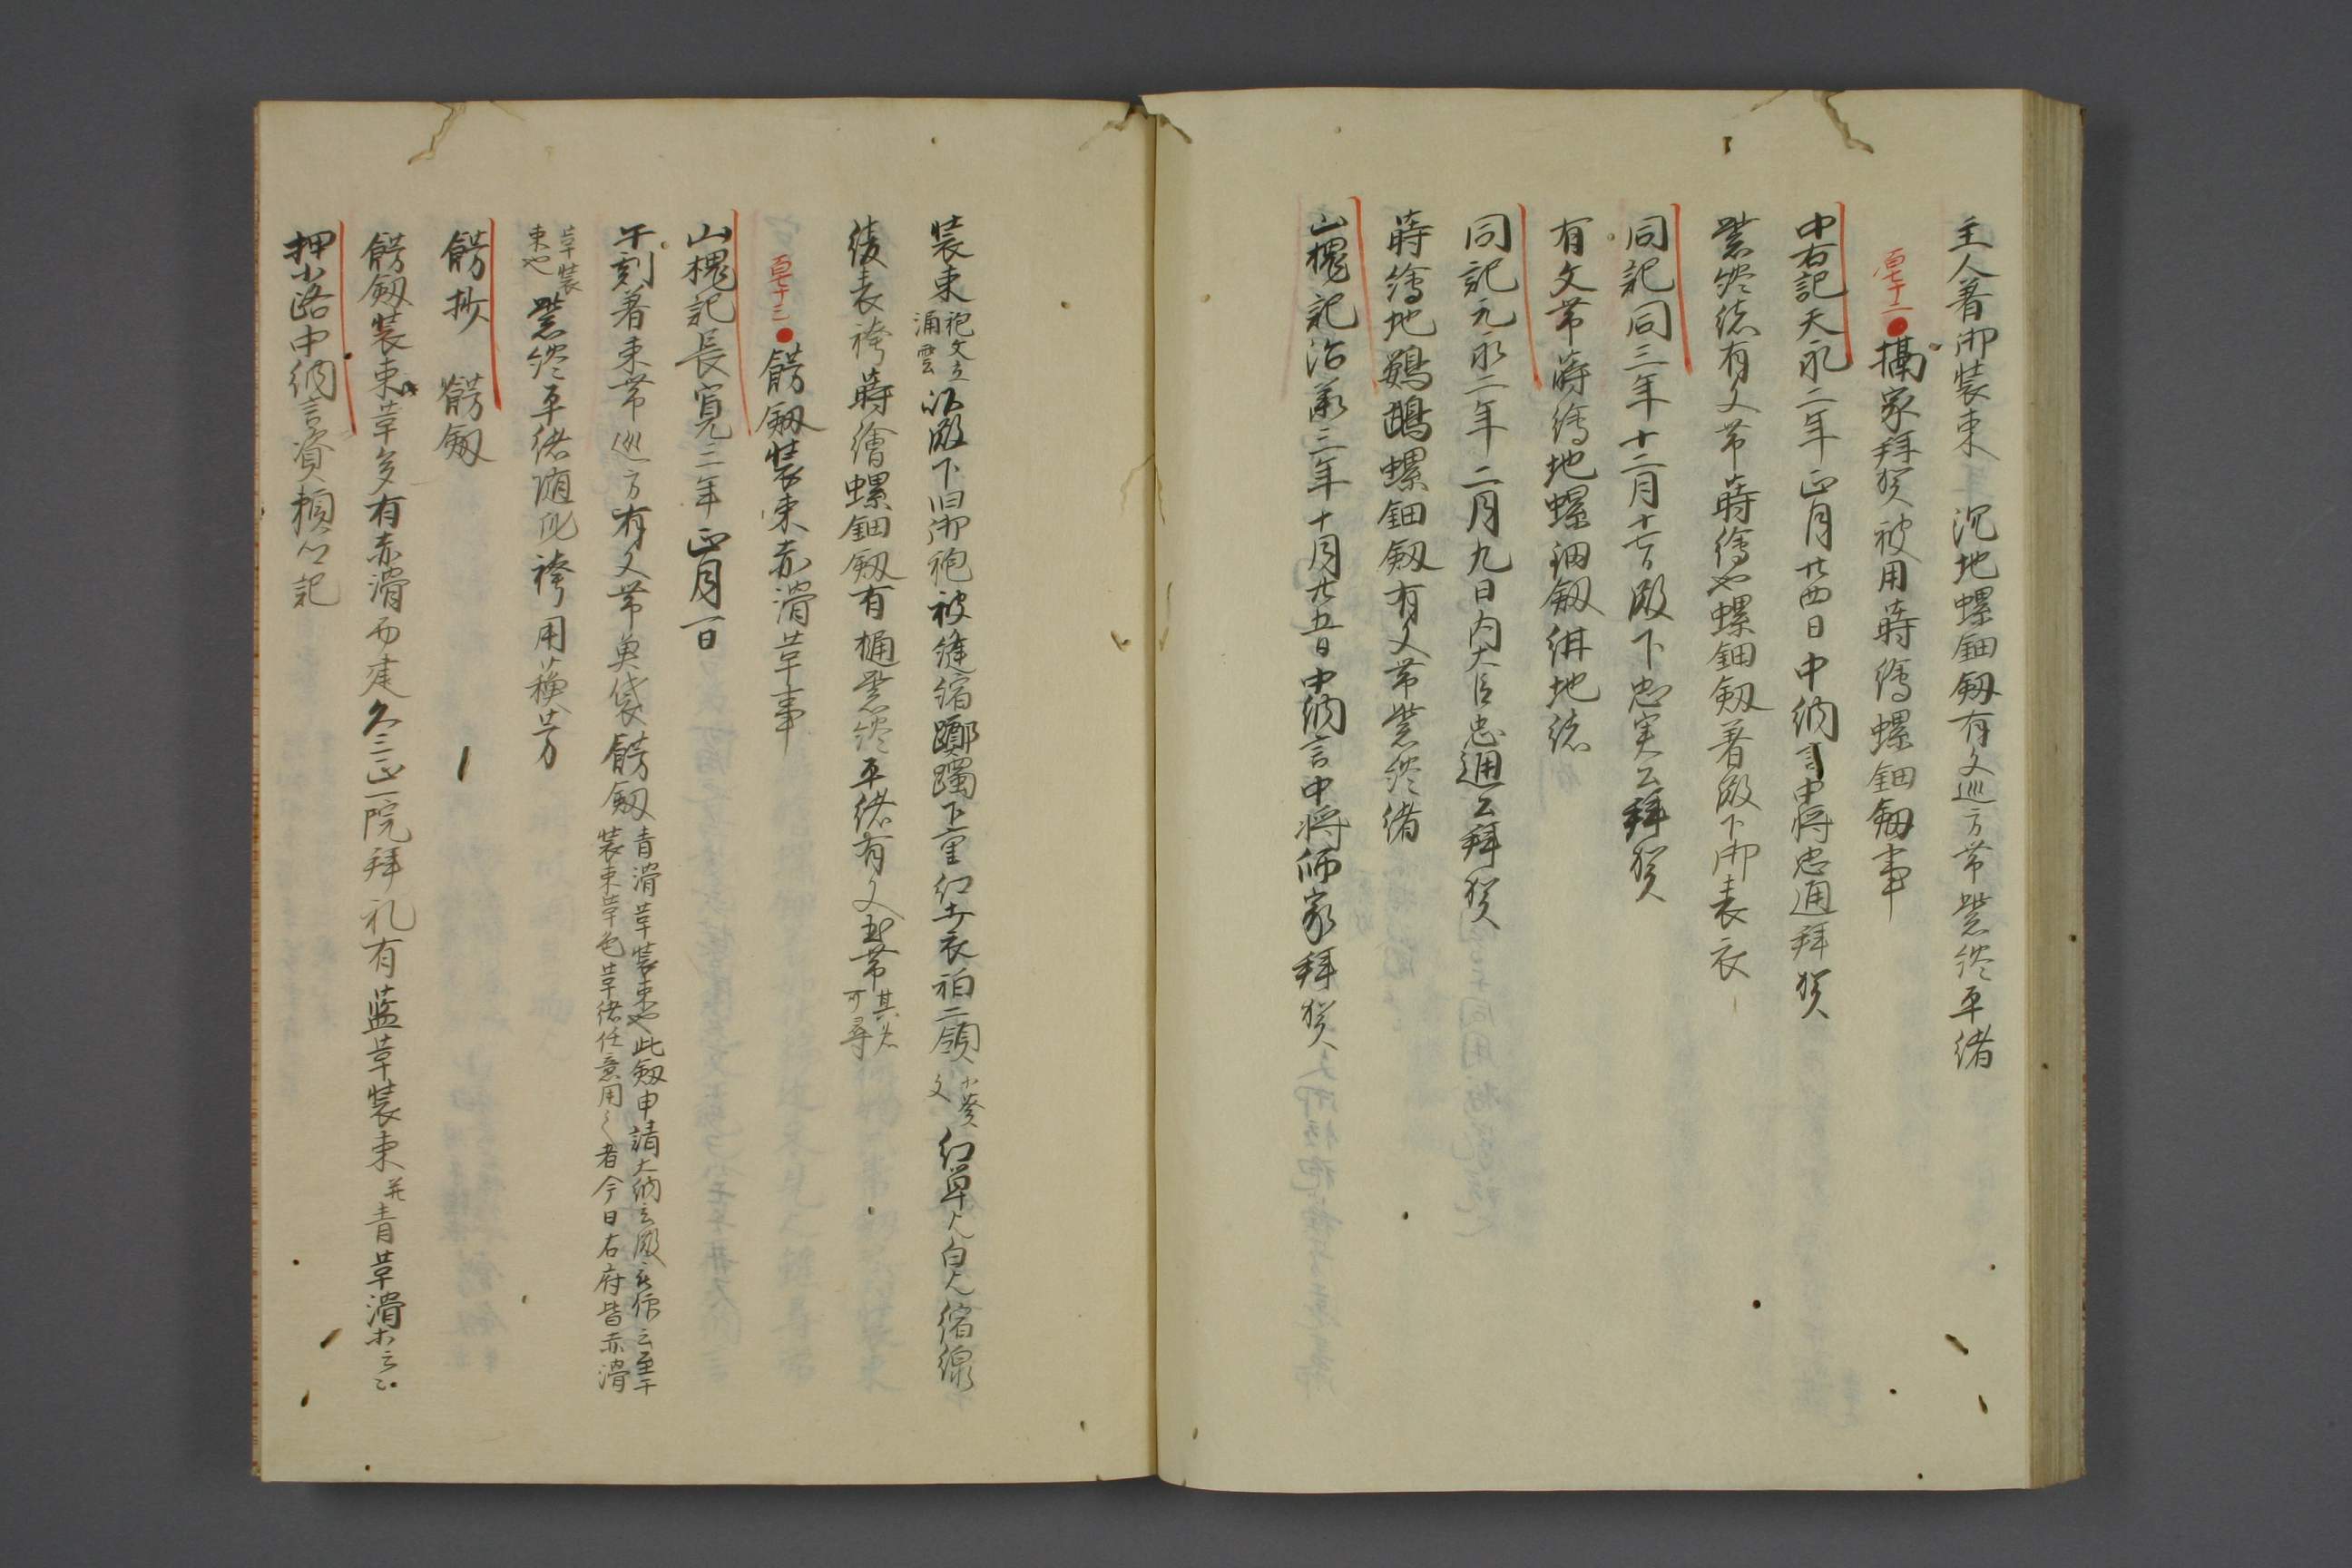 主人著御装束　沉地螺鈿釼有文巡方帯紫終平緒
百七十二●摂家拝賀被用蒔繪螺鈿釼事
中右記天永二年正月廿四日中納言中将忠通拝賀
紫終緒有文帯蒔繪也螺鈿釼著殿下御表衣
同記同三年十二月十七日殿下忠実公拝賀
有文帯蒔繪地螺鈿釼紺地緒
同記元永二年二月九日内大臣忠通公拝賀
蒔繪地鸚鵡螺鈿釼有文帯紫終緒
山槐記治承三年十月廿五日中納言中将師家拝賀
装束袍文立涌雲以殿下旧御袍被縫縮躑躅下重紅打衣衵二領小葵文紅単白縮線
綾表袴蒔繪螺鈿釼有樋紫終平緒有文玉帯其名可尋
百七十三●餝釼装束赤滑革事
山槐記長寛二年正月一日
午刻著束帯巡方有文帯魚袋餝釼青滑革装束也此釼申請大納言殿被仰云至于装束革色革緒任意用之者今日右府皆赤滑
革装束也紫終平緒随此袴用蘓芳
餝抄　餝釼
餝釼装束革多有赤滑而建久三正一院拝礼有藍革装束并青革滑木云々
押小路中納言資頼公記